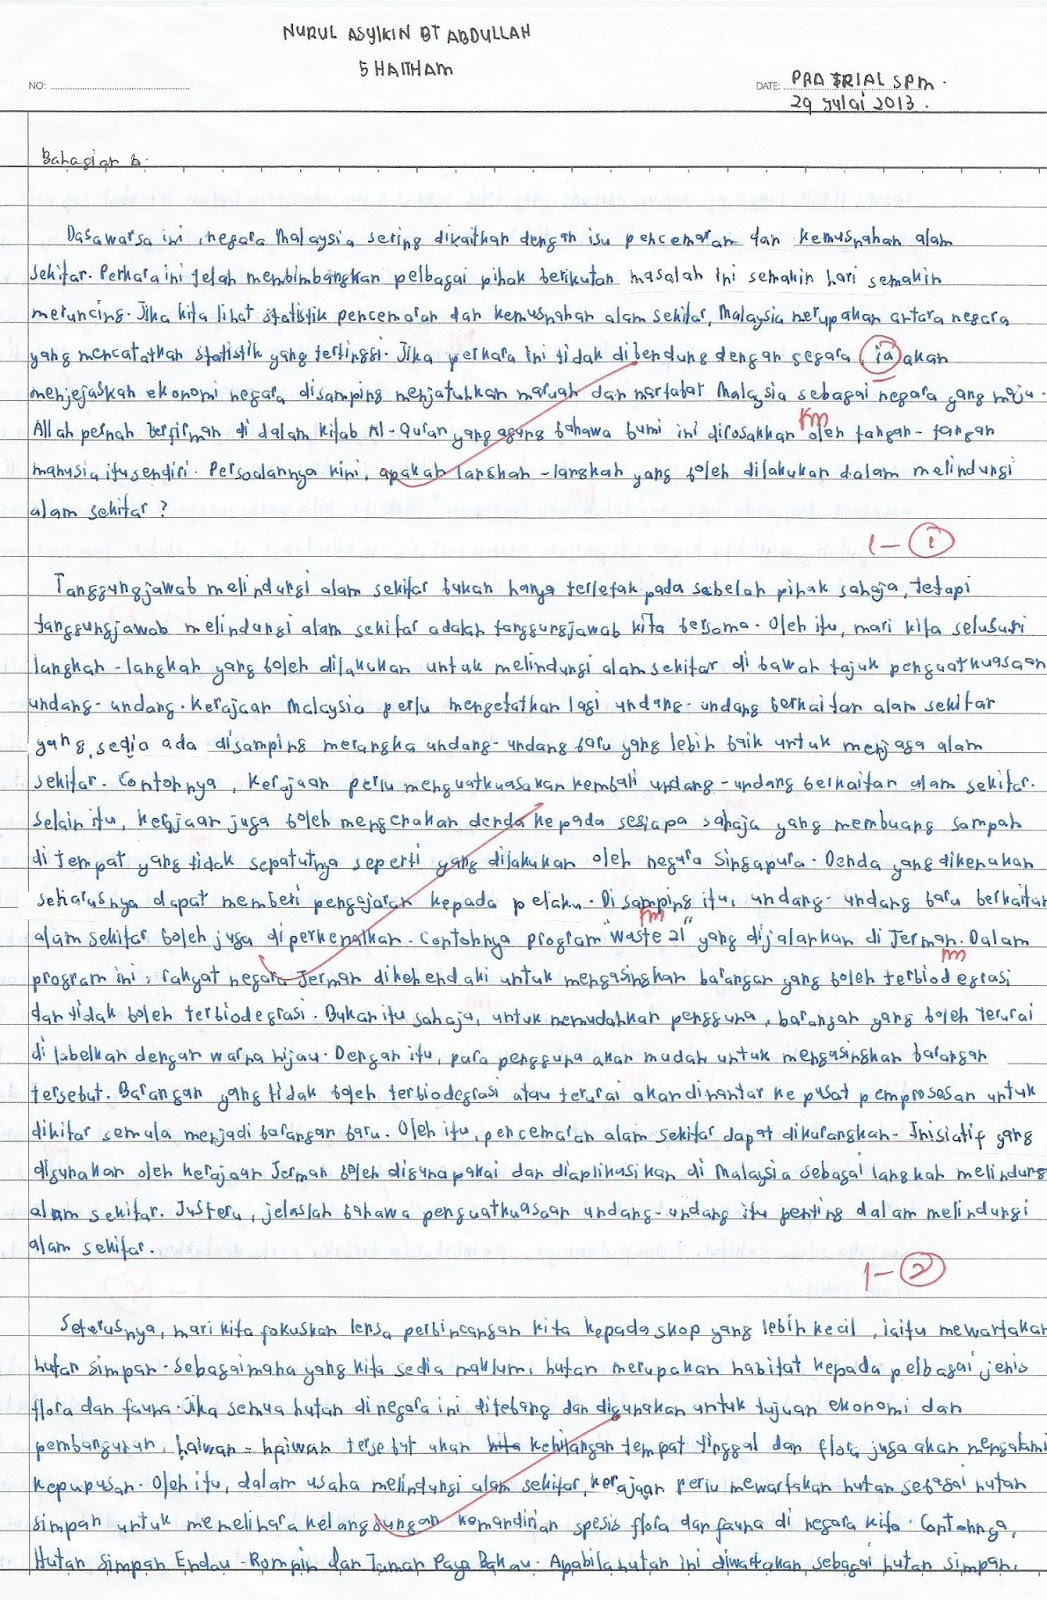 NURUL ASYIKIN BT ABDULLAH
5 HAITHAM
NO:
DATE: PRA TRIAL SPM.
29 Julai 2013.
Bahagian B.
Dasawarsa ini, negara Malaysia sering dikaitkan dengan isu pencemaran dan kemusnahan alam
sekitar. Perkara ini telah membimbangkan pelbagai pihak berikutan masalah ini semakin hari semakin
meruncing. Jika kita lihat statistik pencemaran dan kemusnahan alam sekitar, Malaysia merupakan antara negara
yang mencatatkan statistik yang tertinggi. Jika perkara ini tidak dibendung dengan segara, ia akan
menjejaskan ekonomi negara disamping menjatuhkan maruah dan martabat Malaysia sebagai negara yang maju.
km
Allah pernah berfirman di dalam kitab Al-Quran yang agung bahawa bumi ini dirosakkan oleh tangan-tangan
manusia itu sendiri. Persoalannya kini, apakah langkah-langkah yang boleh dilakukan dalam melindungi
alam sekitar?
1 - 1
Tanggungjawab melindungi alam sekitar bukan hanya terletak pada sebelah pihak sahaja, tetapi
tanggungjawab melindungi alam sekitar adalah tanggungjawab kita bersama. Oleh itu, mari kita selusuri
langkah-langkah yang boleh dilakukan untuk melindungi alam sekitar di bawah tajuk penguatkuasaan
undang-undang. Kerajaan Malaysia perlu mengetatkan lagi undang-undang berkaitan alam sekitar
yang sedia ada disamping merangka undang-undang baru yang lebih baik untuk menjaga alam
sekitar. Contohnya, kerajaan perlu menguatkuasakan kembali undang-undang berkaitan alam sekitar.
Selain itu, kerajaan juga boleh mengenakan denda kepada sesiapa sahaja yang membuang sampah
di tempat yang tidak sepatutnya seperti yang dilakukan oleh negara Singapura. Denda yang dikenakan
seharusnya dapat memberi pengajaran kepada pelaku. Disamping itu, undang-undang baru berkaitan
fm
alam sekitar boleh juga diperkenalkan. Contohnya program "Waste 21" yang dijalankan di Jerman. Dalam
fm
program ini, rakyat negara Jerman dikehendaki untuk mengasingkan barangan yang boleh terbiodegrasi
dan tidak boleh terbiodegrasi. Bukan itu sahaja, untuk memudahkan pengguna, barangan yang boleh terurai
di labelkan dengan warna hijau. Dengan itu, para pengguna akan mudah untuk mengasingkan barangan
tersebut. Barangan yang tidak boleh terbiodegrasi atau terurai akan dihantar ke pusat pemprosesan untuk
dikitar semula menjadi barangan baru. Oleh itu, pencemaran alam sekitar dapat dikurangkan. Inisiatif yang
digunakan oleh kerajaan Jerman boleh digunapakai dan diaplikasikan di Malaysia sebagai langkah melindungi
alam sekitar. Justeru, jelaslah bahawa penguatkuasaan undang-undang itu penting dalam melindungi
alam sekitar.
1 - 2
Seterusnya, mari kita fokuskan lensa perbincangan kita kepada skop yang lebih kecil, iaitu mewartakan
hutan simpan. Sebagaimana yang kita sedia maklum, hutan merupakan habitat kepada pelbagai jenis
flora dan fauna. Jika semua hutan di negara ini ditebang dan digunakan untuk tujuan ekonomi dan
pembangunan, haiwan-haiwan tersebut akan kehilangan tempat tinggal dan flora juga akan mengalami
kepupusan. Oleh itu, dalam usaha melindungi alam sekitar, kerajaan perlu mewartakan hutan sebagai hutan
simpan untuk memelihara kelangsungan kemandirian spesis flora dan fauna di negara kita. Contohnya,
Hutan Simpan Endau-Rompin dan Taman Paya Bakau. Apabila hutan ini diwartakan sebagai hutan simpan,